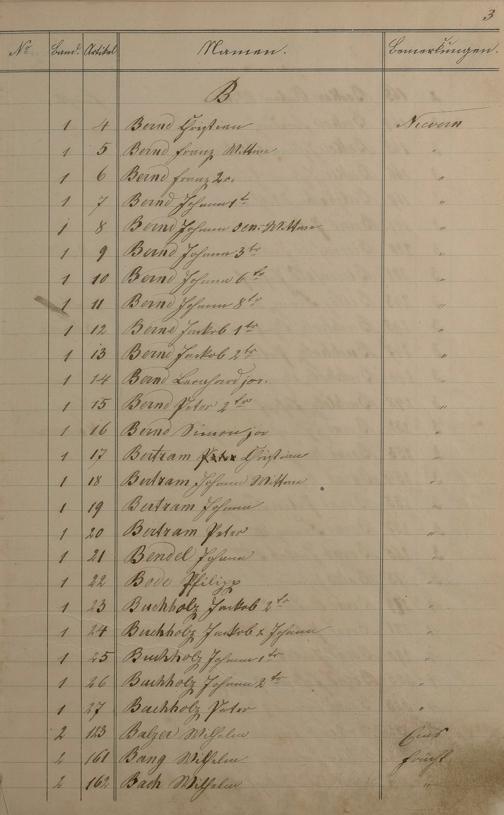 3
No Band. Artikel Namen. Bemerkungen.
B
1 4 Bernd Christian Nievern
1 5 Bernd Franz Wittwe "
1 6 Bernd Franz 2r. "
1 7 Bernd Johann 1t "
1 8 Bernd Johann sen. Wittwe "
1 9 Bernd Johann 3ter "
1 10 Bernd Johann 6ter "
1 11 Bernd Johann 8ter "
1 12 Bernd Jackob 1ter "
1 13 Bernd Jackob 2ter "
1 14 Bernd Leonhard jor. "
1 15 Bernd Peter 2ter "
1 16 Bernd Simon jor "
1 17 Bertram Christian "
1 18 Bertram Johann Wittwe "
1 19 Bertram Johann "
1 20 Bertram Peter "
1 21 Bendel Johann "
1 22 Bode Philipp "
1 23 Buchholz Jackob 2ter "
1 24 Buchholz Jackob & Johann "
1 25 Buchholz Johann 1ter "
1 26 Buchholz Johann 2ter "
1 27 Buchholz Peter "
2 123 Balzer Wilhelm Ems
2 161 Bang Wilhelm Frücht
2 162 Bach Wilhelm "